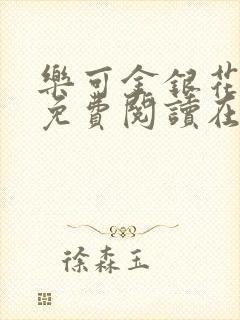 樂可金銀花
免費閱讀在
徐森玉